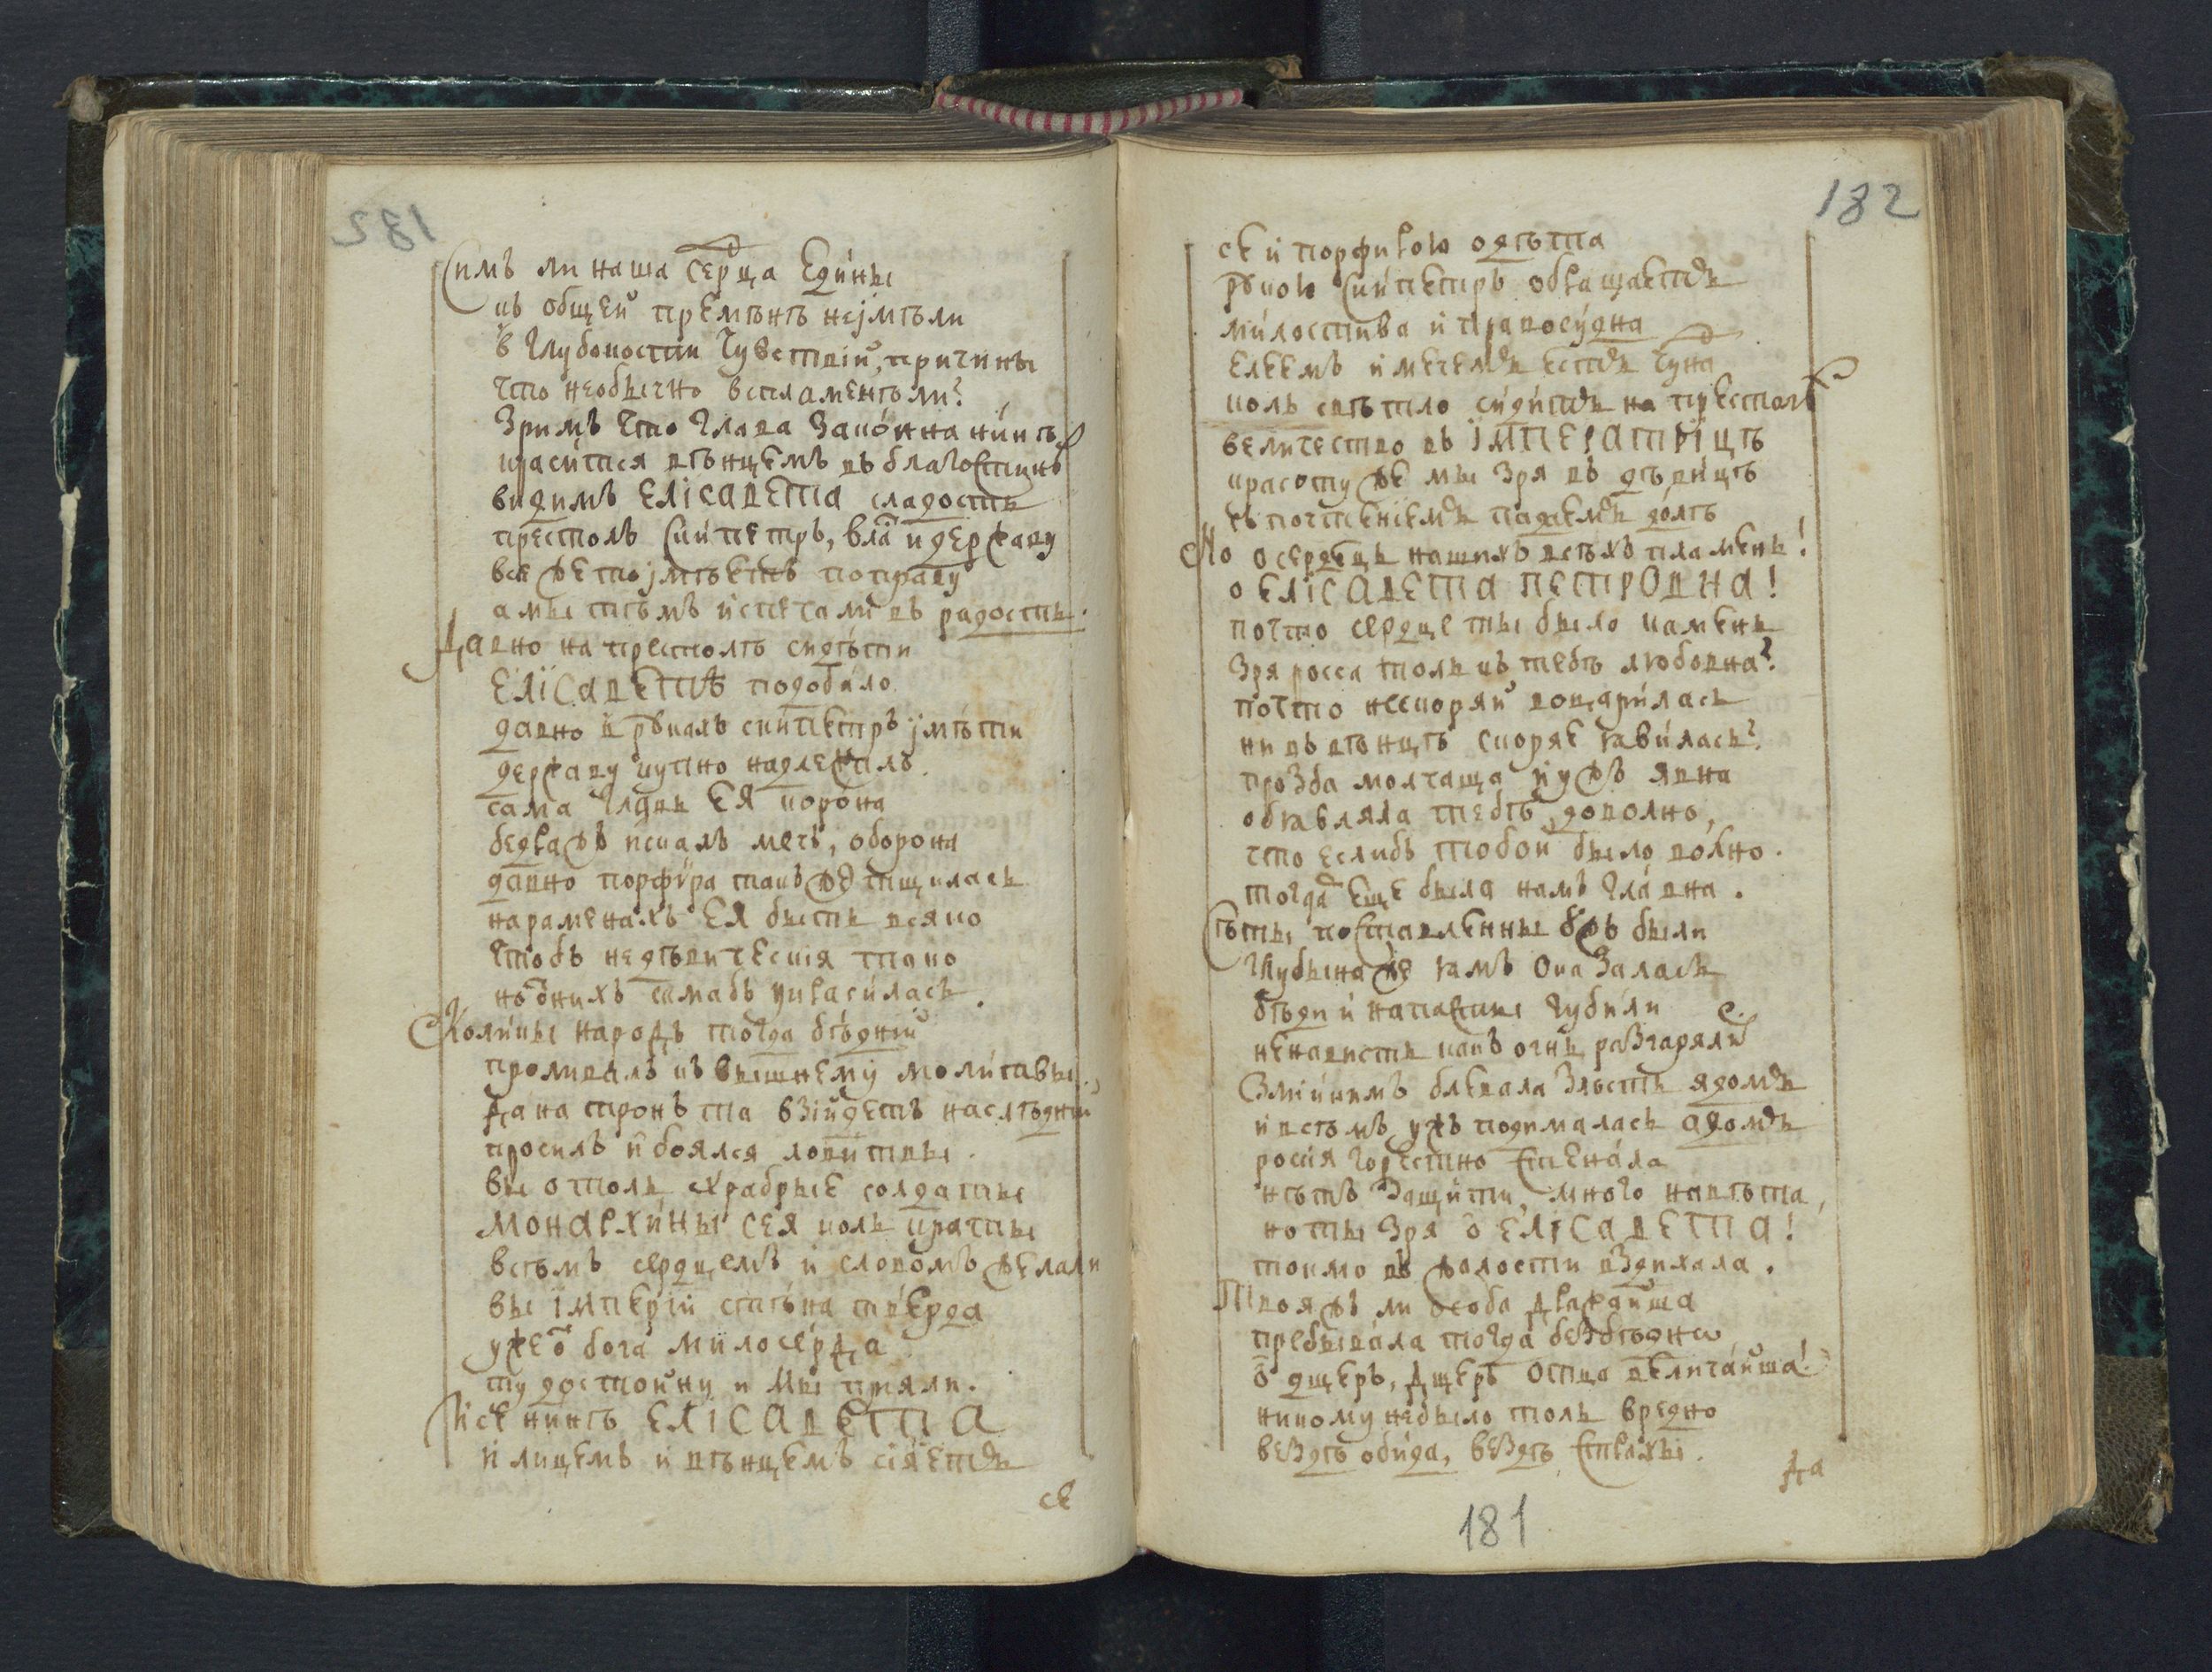 182
Симъ ли наша сердца едины
къ общей премѣнѣ неімѣли
в глубокости чувствій, причины
что необычно воспламенѣли?
Зримъ что глава законна нйнѣ
краситися вѣнцемъ въ благостинѣ
видимъ ЕЛІСАВЕТА сладость
престолъ скипетръ, вла и державу
все же то імѣетъ поправу
а мы тѣмъ испечали въ радость.
Давно на престолѣ сидѣти
ЕЛІСАВЕТѢ подобало
давно в рукахъ скипетръ імѣти
державу купно надлежалѣ.
сама главы ЕЯ корона
держа исиалъ мечъ, оборона
давно порфура такъ же тщилась
нараменахъ ЕЯ быть всяко
чтобъ недѣвическія тако
но онихъ самабъ украсилась.
Коликы народъ тогда бѣдній
проливалъ къ вышнему молитвы,
Да на тронъ та взійдетъ наслѣдній
просилъ и боялся ловитвы.
вы отоль храбрые солдаты
МОНАРХИНЫ СЕЯ коль кратны
всѣмъ сердцемъ и словомъ желали
вы імперіи стѣна тверда
уже о бога милосерда
ту достойну и мы прияли.
Исе нйнѣ ЕЛІСАВЕТА
и лицемъ и вѣнцемъ сіяетъ
се
182
се и порфирою одѣта
рукою скипетръ обращаетъ
милостива и правосудна
елеемъ и мечемъ есть чуна
коль свѣтло сидитъ на престолѣ
величество въ ІМПЕРАТРІЦѢ
красоту же мы зря въ дѣвицѣ
съ почтеніемъ падаемъ долѣ
Но о сердецъ нашихъ всѣхъ пламень!
о ЕЛІСАВЕТА ПЕТРОВНА!
почто сердце ты было камень
зря росса толь къ тебѣ любовна?
почто нескоряй воцарилась
ни въ вѣнцѣ скоряе явилась?
прозба молчаща и ужъ явна
объявляла тебѣ доволно,
что еслибъ тобой было волно.
тогда еще была намъ главна.
Сѣты поставленны ужъ были
глубына же ямъ оказалась
бѣди и напасти губили
ненависть какъ огнь разгарялас
Зміинимъ блевала злость ядомъ
и всѣмъ ужъ подималась адомъ
росія горестно стенала
нѣтъ защити, много навѣта,
но ты зря о ЕЛІСАВЕТА!
токмо въ жалости вздихала.
Твояжъ ли особа дражайша
пребывала тогда безбѣдно
о дщерь, дщерь отца величайша!
никому небыло толь вредно
вездѣ обида, вездѣ страхы.
Да
181